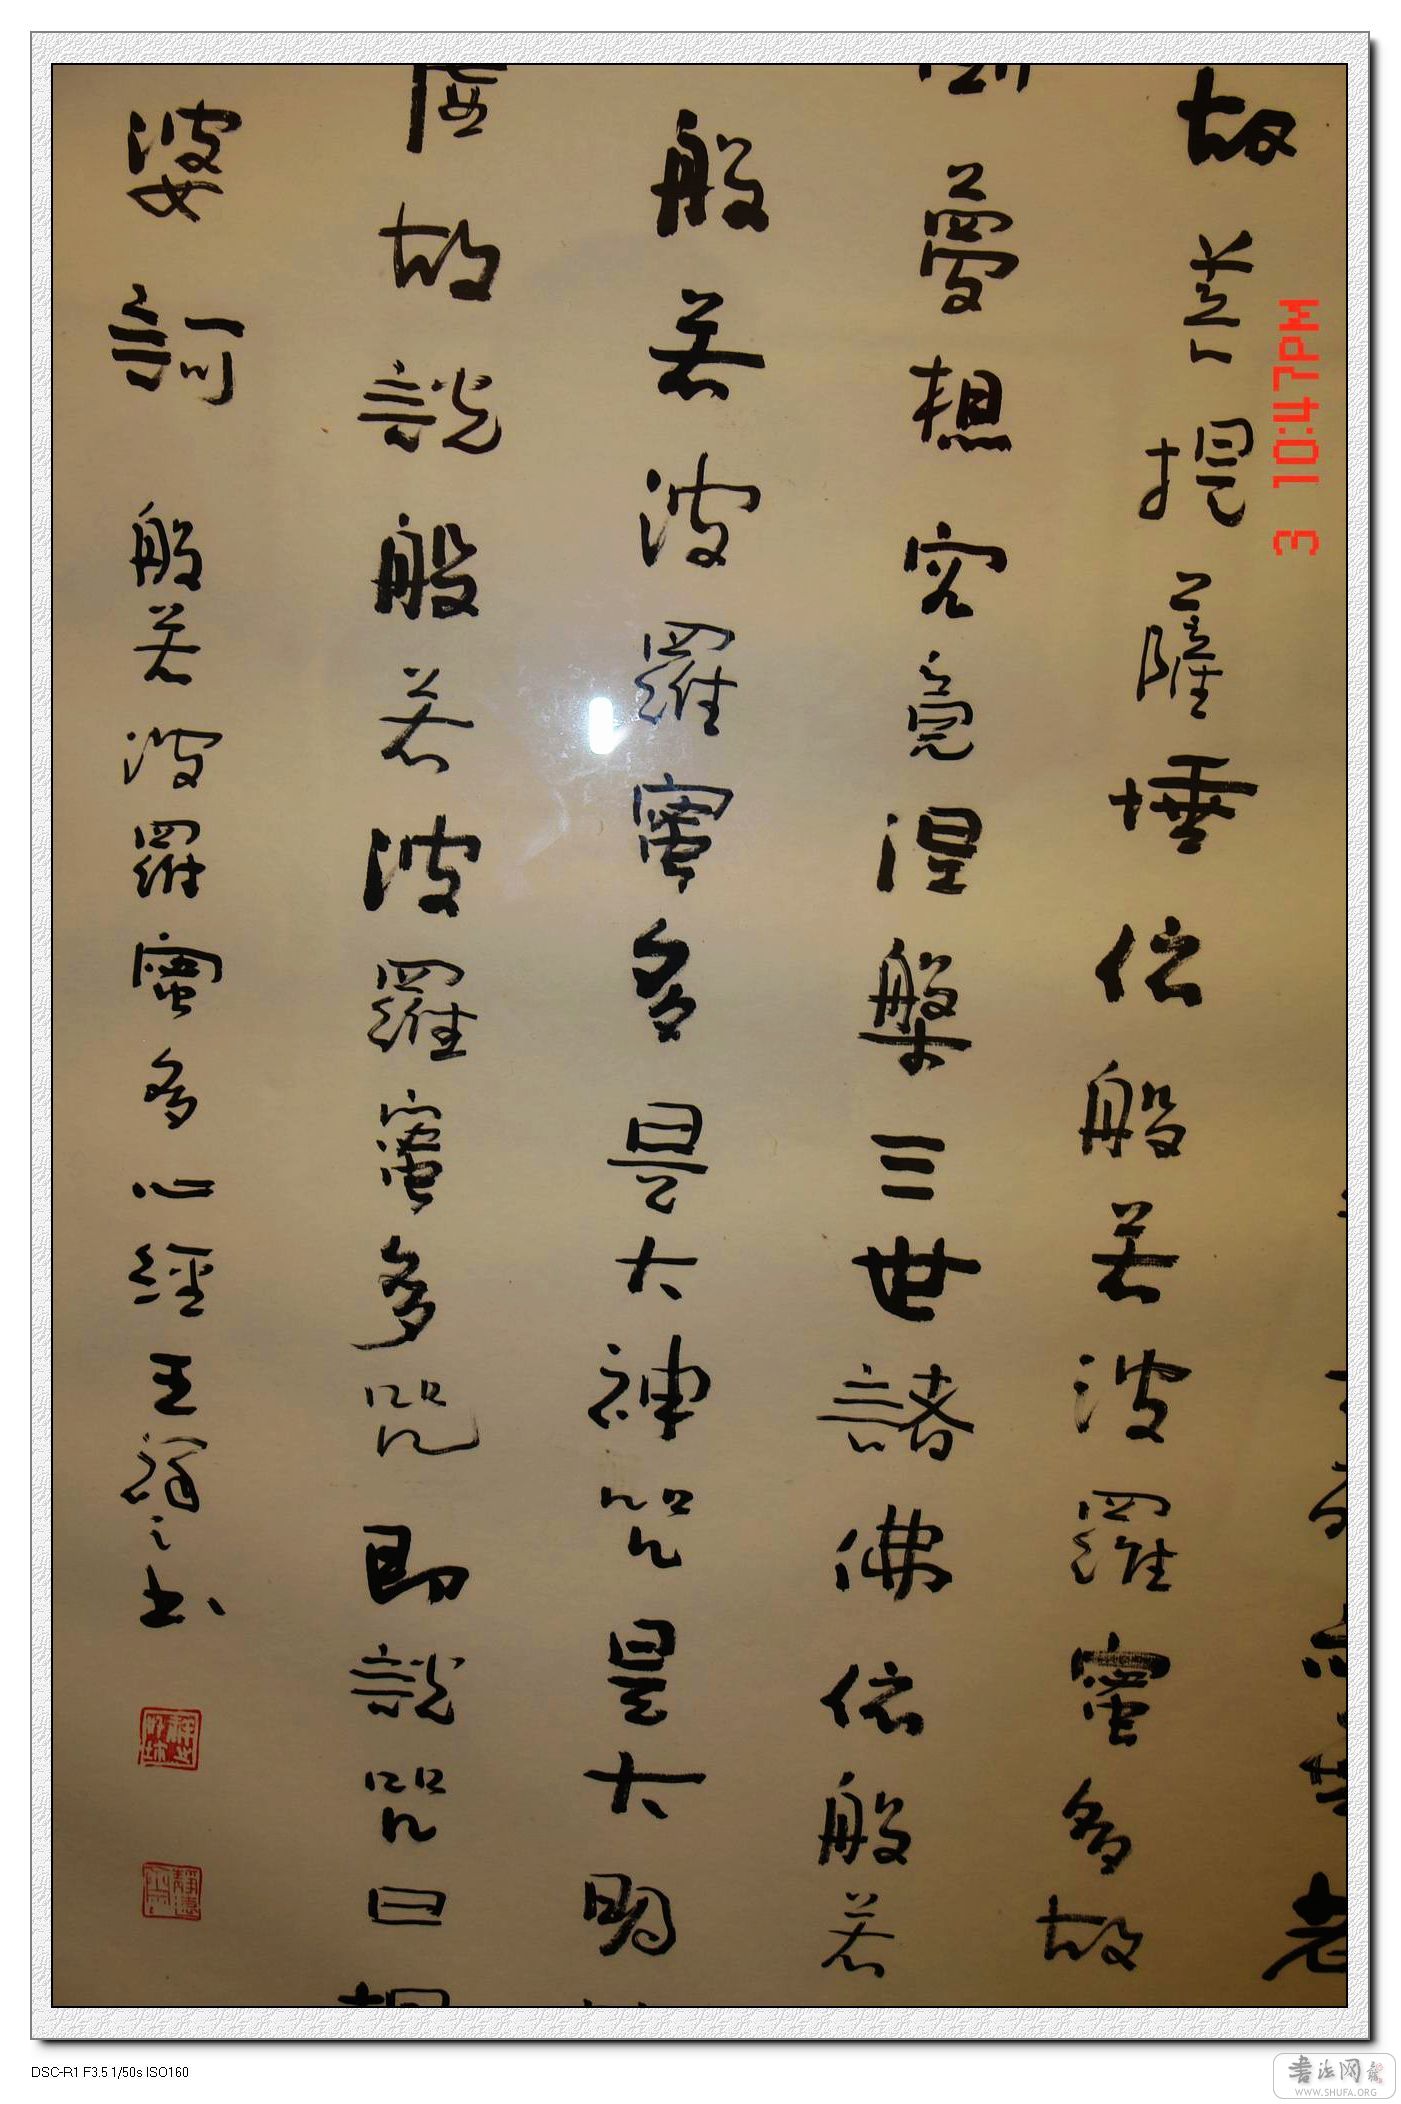 故菩提薩埵依般若波羅蜜多故
夢想究竟涅槃三世諸佛依般若
般若波羅蜜多是大神咒是大明
故說般若波羅蜜多咒即說咒曰
婆訶 般若波羅蜜多心經 王祥之書
3 10:47PM
DSC-R1 F3.5 1/50s ISO160
书法网
WWW.SHUFA.ORG